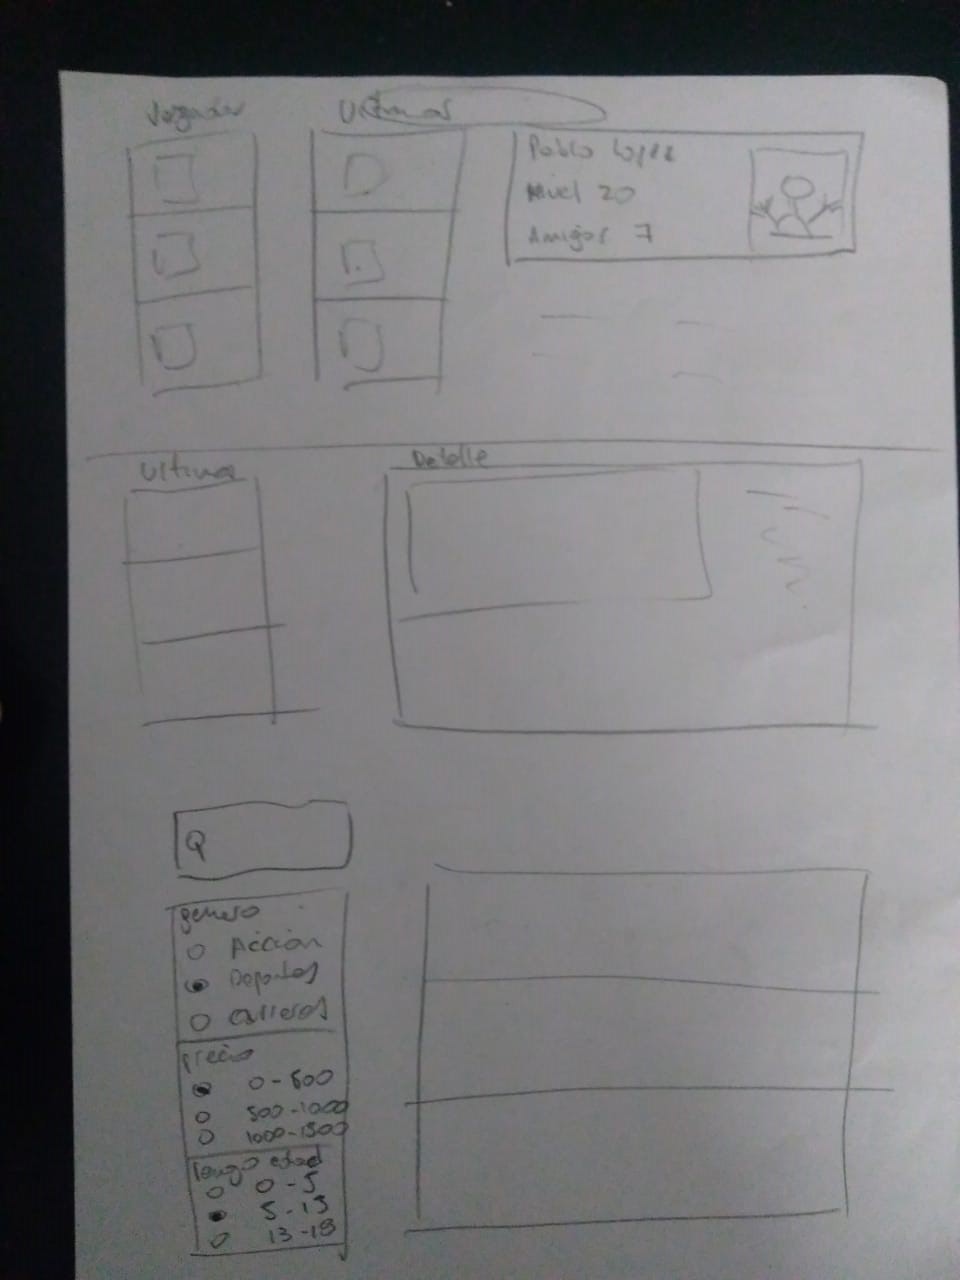 Jugadas
Ultimas
Pablo Lopez
Nivel 20
Amigos 7
Ultimas
Detalle
genero
Acción
Deportes
Carreras
precio
0-500
500-1000
1000-1500
Rango edad
0-5
5-13
13-18